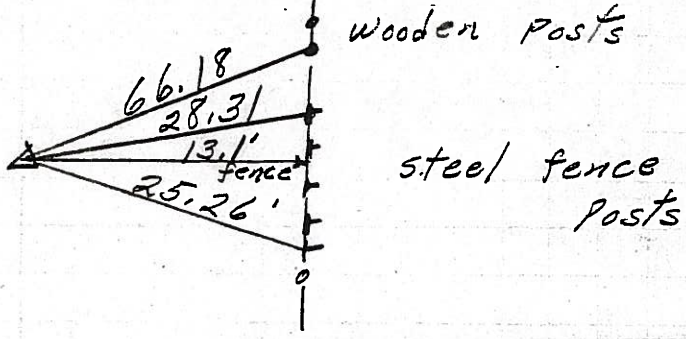 wooden posts
66.18
28.31
13.1'
fence
steel fence
posts
25.26'